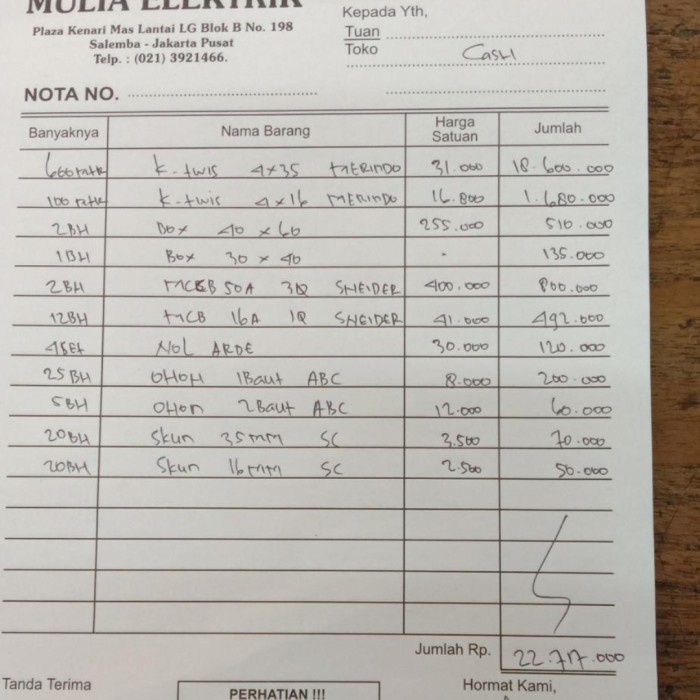 MULIA ELEKTRIK
Plaza Kenari Mas Lantai LG Blok B No. 198
Salemba - Jakarta Pusat
Telp. : (021) 3921466.
Kepada Yth,
Tuan
Toko Cash
NOTA NO.
Banyaknya Nama Barang Harga Satuan Jumlah
600 k-twis 4x35 MERINDO 31.000 18.600.000
100 k-twis 4x16 MERINDO 16.800 1.680.000
2BH Box 40 x 60 255.000 510.000
1BH Box 30 x 40 - 135.000
2BH MCB 50A 3Q SNEIDER 400.000 800.000
12BH MCB 16A 1Q SNEIDER 41.000 492.000
4SET NOL ARDE 30.000 120.000
25 BH OHOH 1Baut ABC 8.000 200.000
5BH OHOH 2Baut ABC 12.000 60.000
20BH Skun 35mm SC 3.500 70.000
20BH Skun 16mm SC 2.500 50.000
Jumlah Rp. 22.717.000
Tanda Terima
PERHATIAN !!!
Hormat Kami,